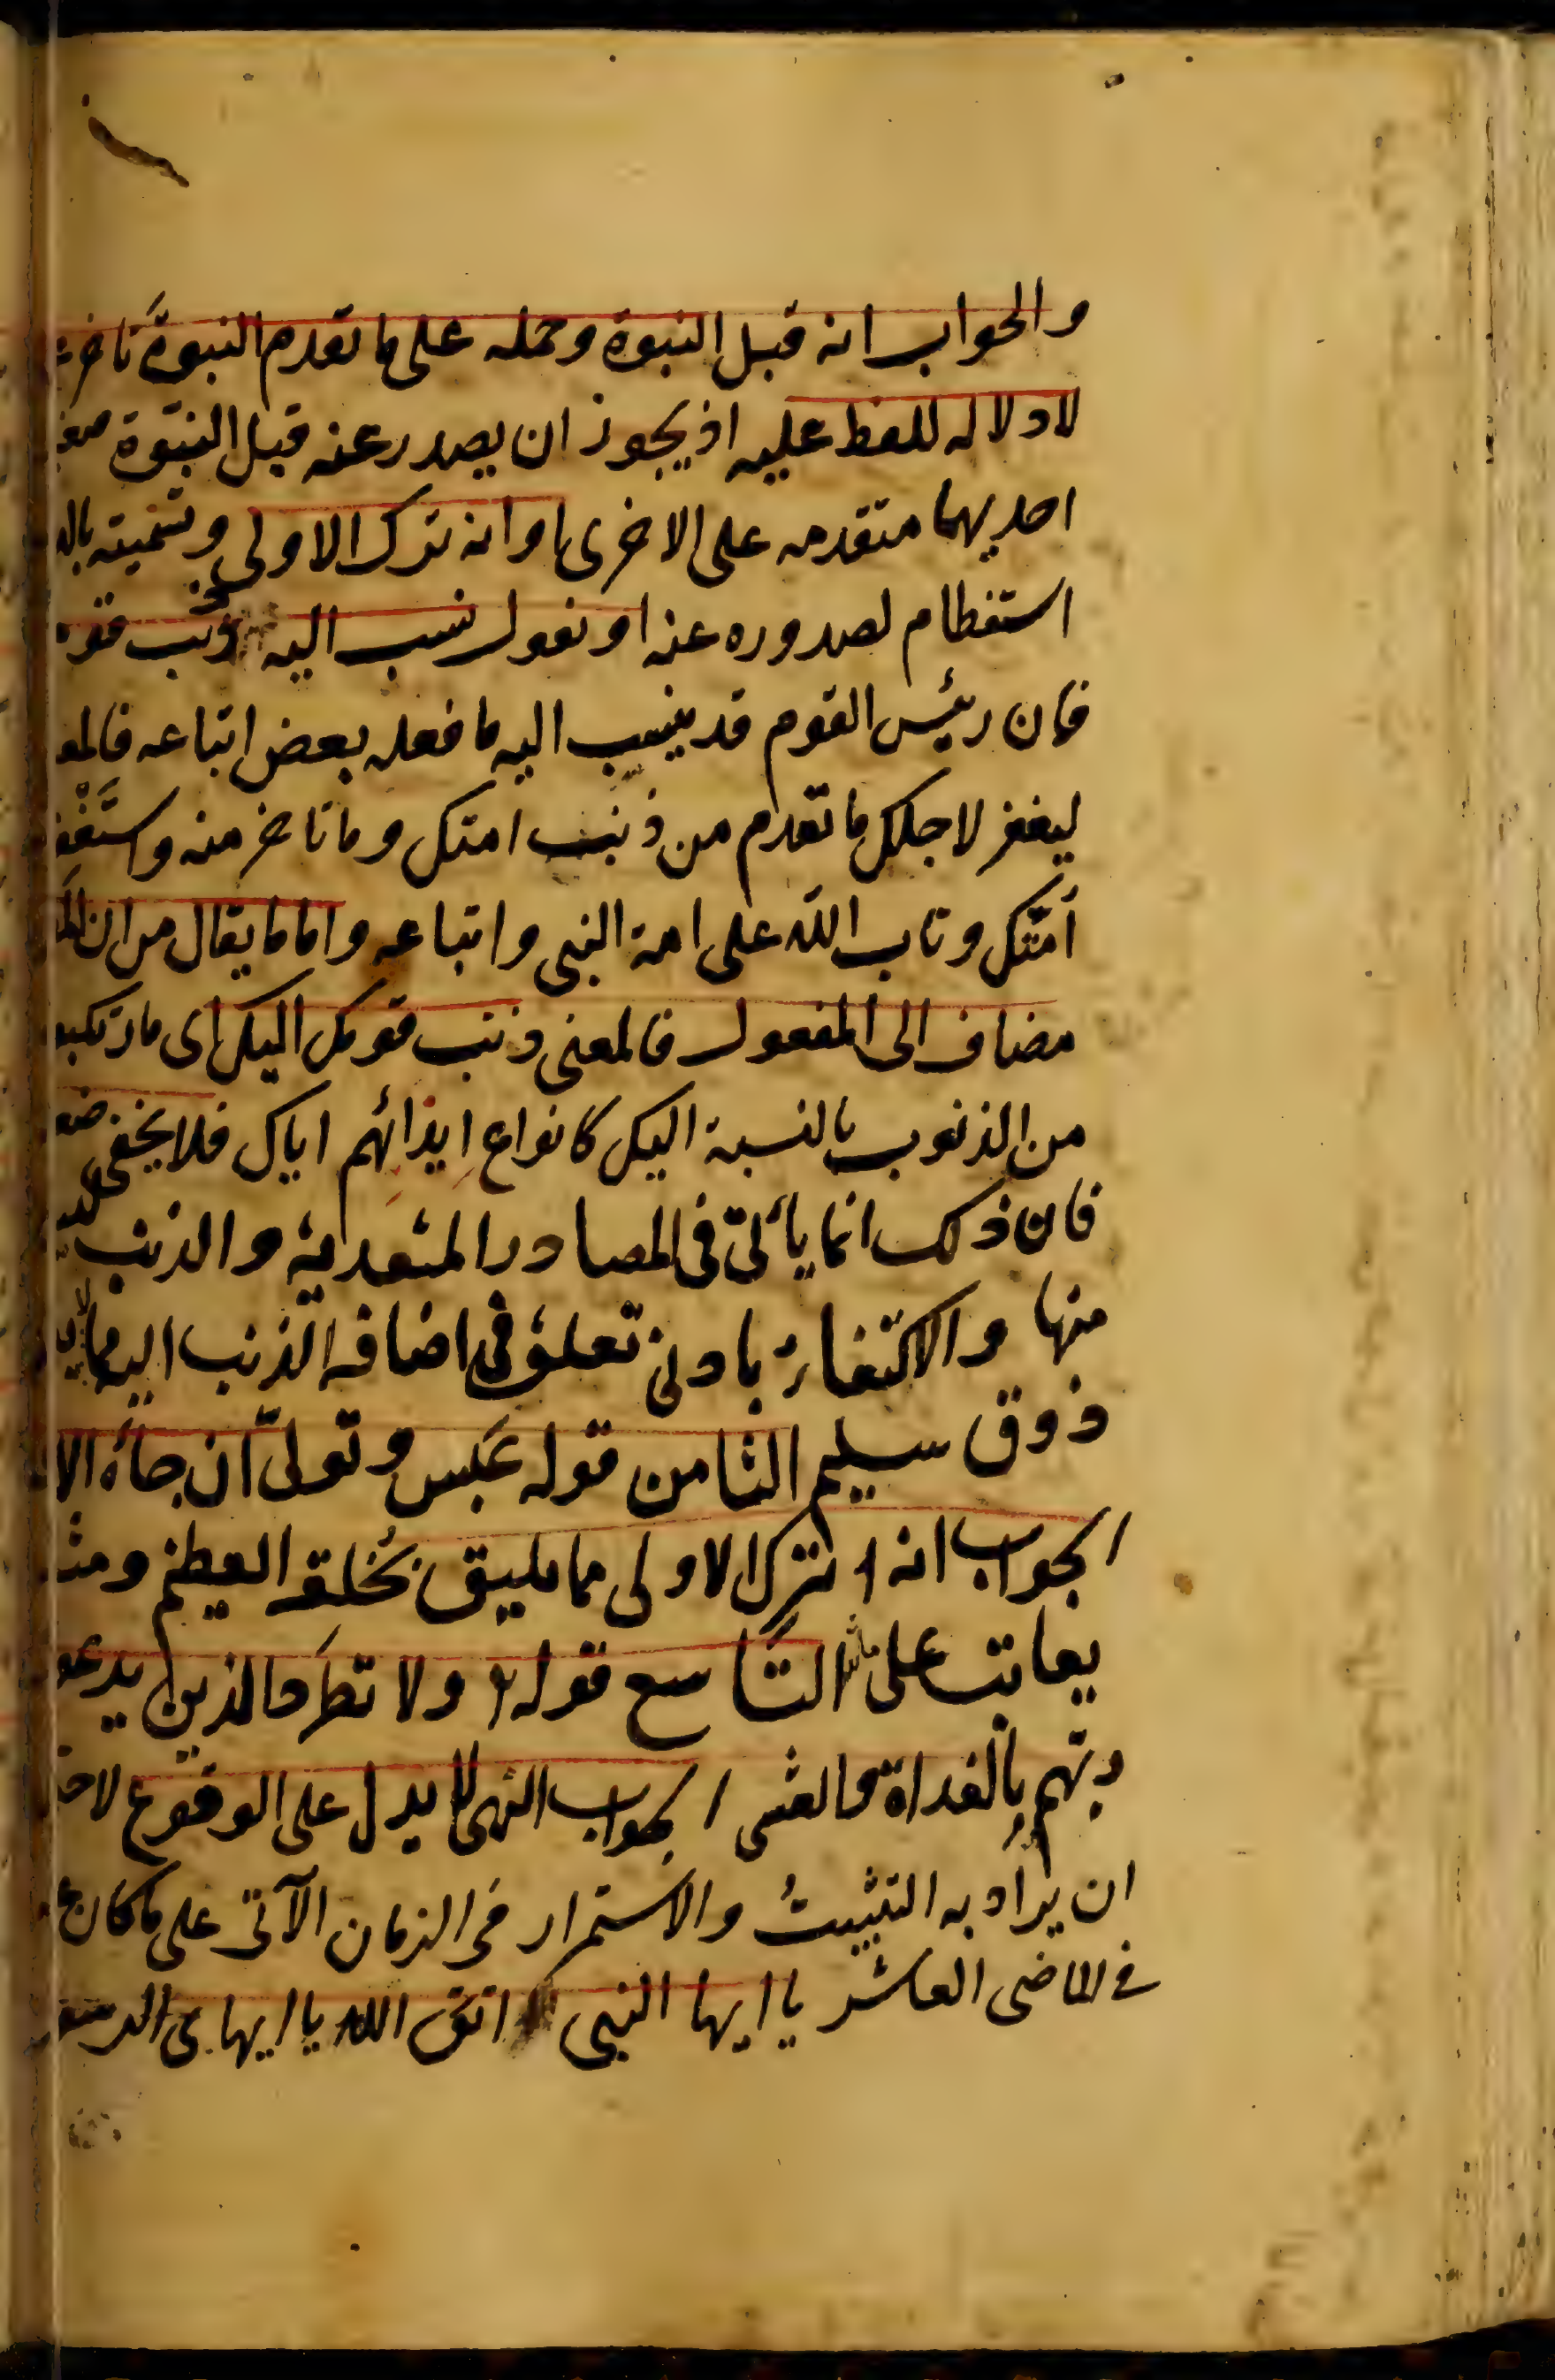 والجواب انه قبل النبوة وحمله على ما تقدم النبوة
لا دلاله للفظ عليه اذ يجوز ان يصدر عنه قبل النبوّة
احديهما متقدمه على الاخرى او انه ترك الاولى وتسميته
استعظام لصدوره عنه او نقول نسب اليه ذنب
فان رئيس القوم قد ينسب اليه ما فعله بعض اتباعه
ليغفر لاجلك ما تقدم من ذنب امتك وما تاخر منه
أمّتك وتاب الله على امة النبى واتباعه واما ما يقال من ان
مضاف الى المفعول فالمعنى ذنب قومك اليك اى
من الذنوب بالنسبة اليك كانواع ايذائهم اياك فلا يخفى
فان ذلك انما يأتى فى المصادر المتعدية والذنب
منها والاكتفاء بادنى تعلق فى اضافه الذنب اليه
ذوق سليم الثامن قوله عَبس وتولىّ ان جاءه
الجواب انه ترك الاولى مما يليق بخُلقه العظيم
يعاتب على مثله التاسع قوله ولا تطرَد الذين
ربّهم بِالغداة والعشى الجواب النهى لا يدل على الوقوع
ان يراد به التثبيتُ والاستمرار فى الزمان الآتى على ما كان
فى الماضى العاشر يا ايها النبى اتق الله يا ايها